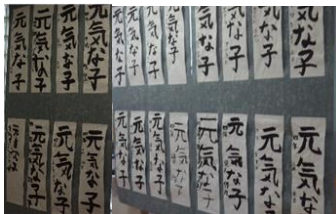 元気な子
元気な子
元気な子
元気な子
元気な子
元気な子
元気な子
元気な子
元気な子
元気な子
元気な子
気な子
元気な子
元気な子
元気な子
元気な子
元気な子
元気な子
元気な子
元気な子
元気な子
元気な子
元気な子